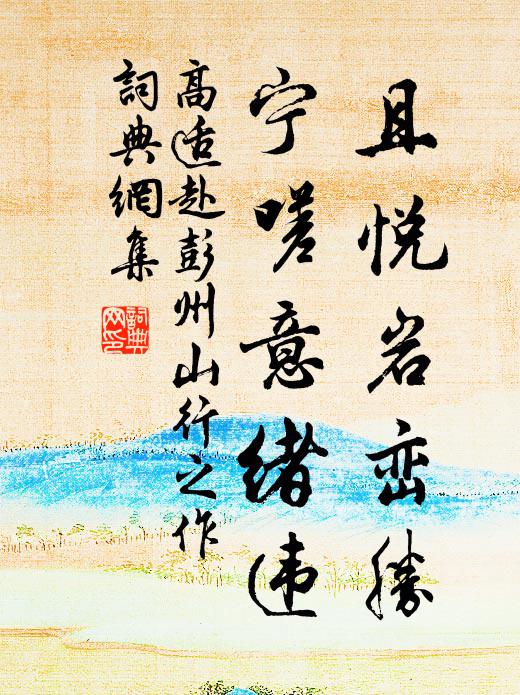 且悦岩峦勝
宁嗟意绪违
高适赴彭州山行之作
詞典網集
詞典网印